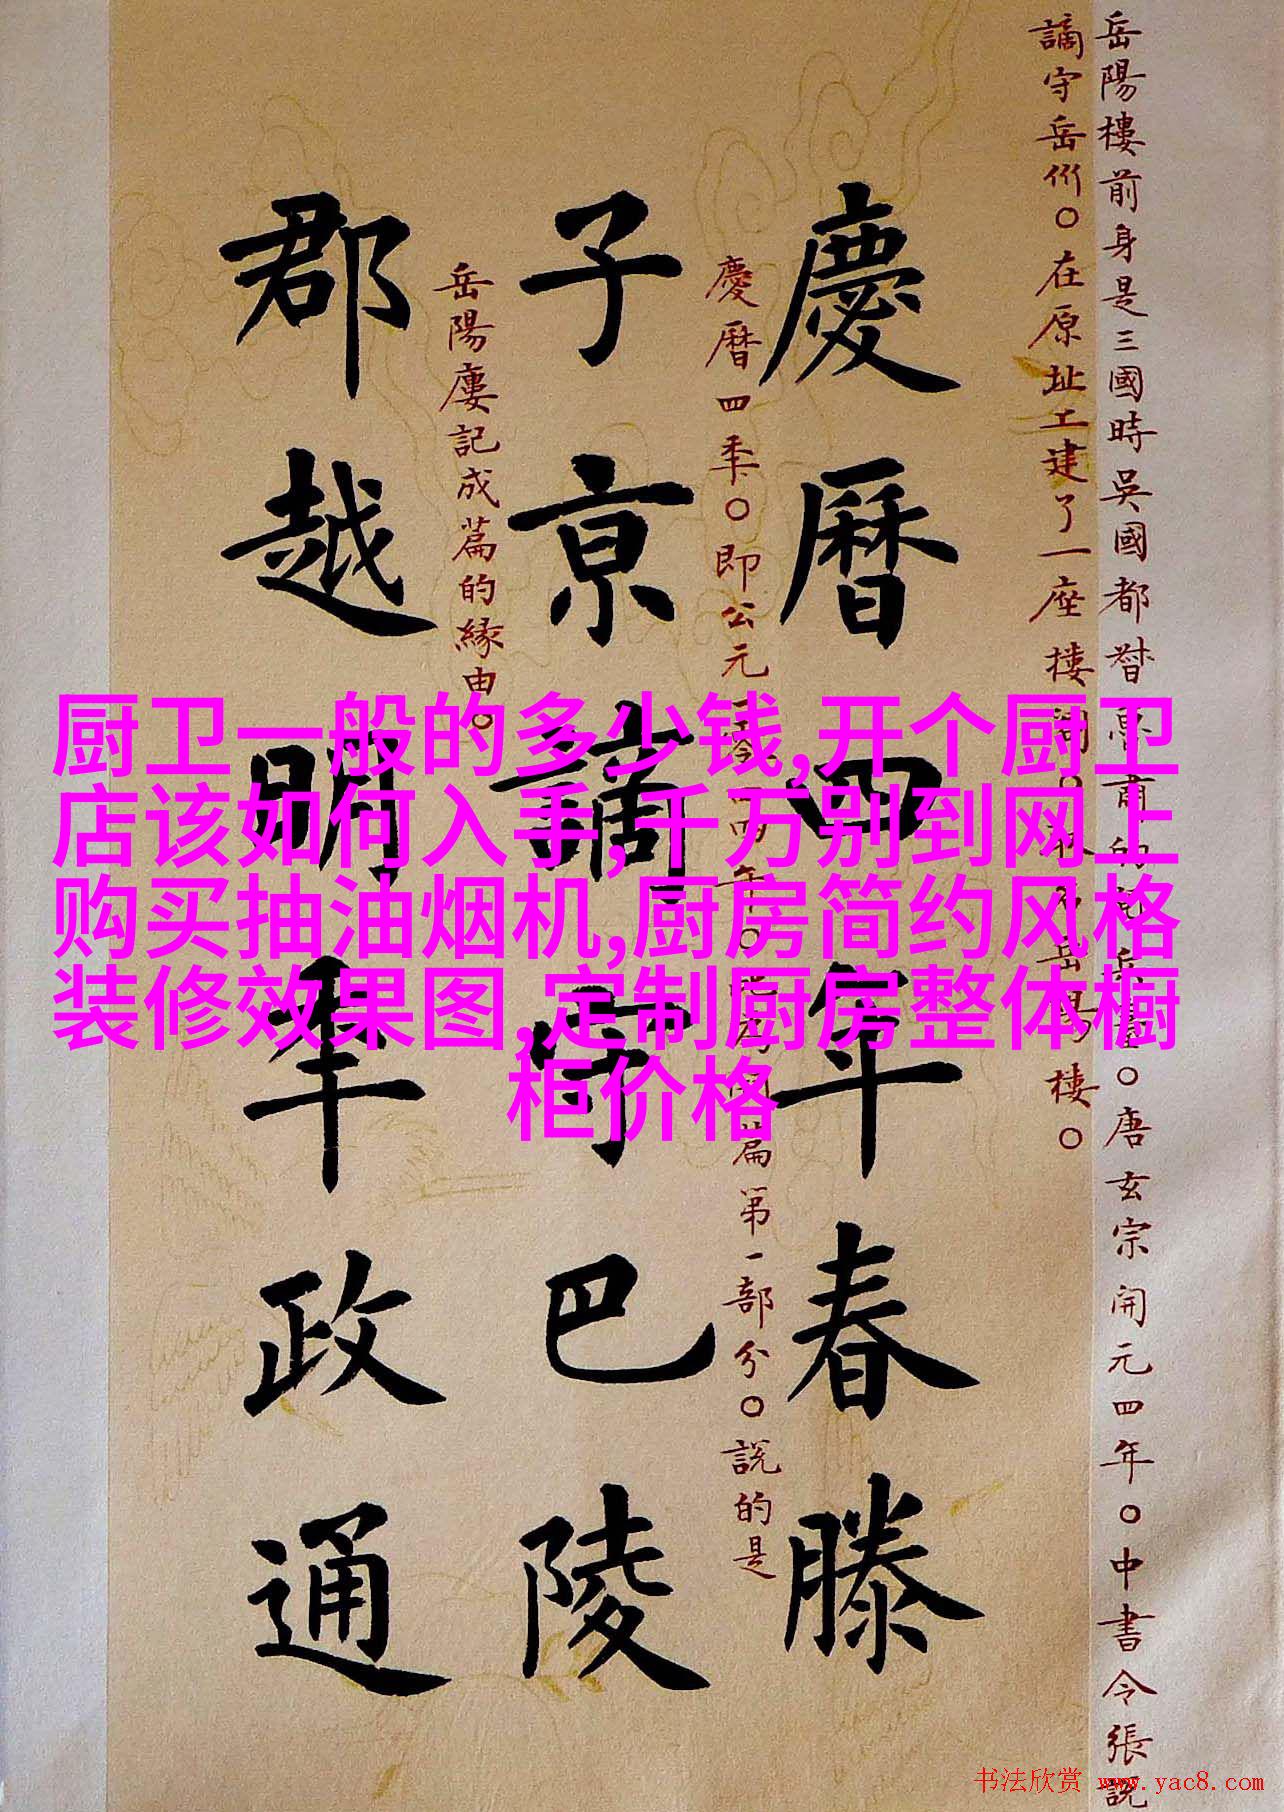 岳陽樓前身是三國時吳國都督魯肅的閱兵臺○唐玄宗開元四年○中書令張說
謫守岳州○在原址工建了一座樓閣○取名岳陽樓○
慶曆四年春滕
慶曆四年○即公元一零四四年○此為開篇第一部分○說的是
子京謫守巴陵
岳陽廔記成篇的緣由○
郡越明年政通
厨卫一般的多少钱,开个厨卫
店该如何入手,千万别到网上
购买抽油烟机,厨房简约风格
装修效果图,定制厨房整体橱
柜价格
书法欣赏 www.yac8.com